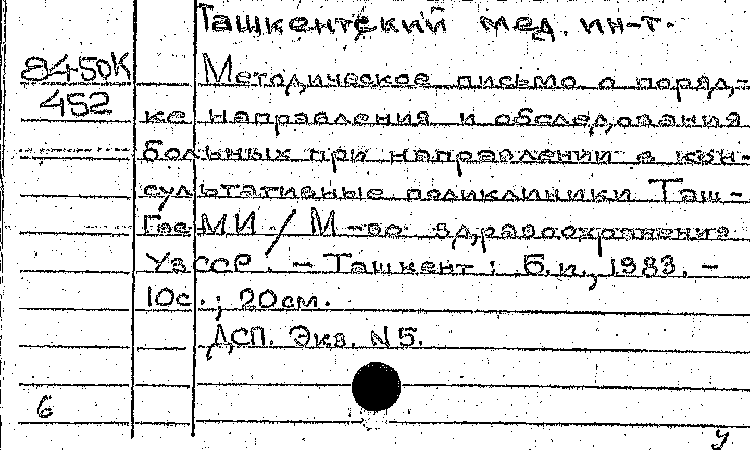 Ташкентский мед. ин-т.
8450К Методическое письмо о поряд-
452 ке направления и обследования
больных при направлении в кон-
сультативные поликлиники Таш-
ГосМИ / М-во здравоохранения
УзССР. - Ташкент: Б.и., 1983. -
10с.; 20см.
ДСП. Экз. N 5.
6
У